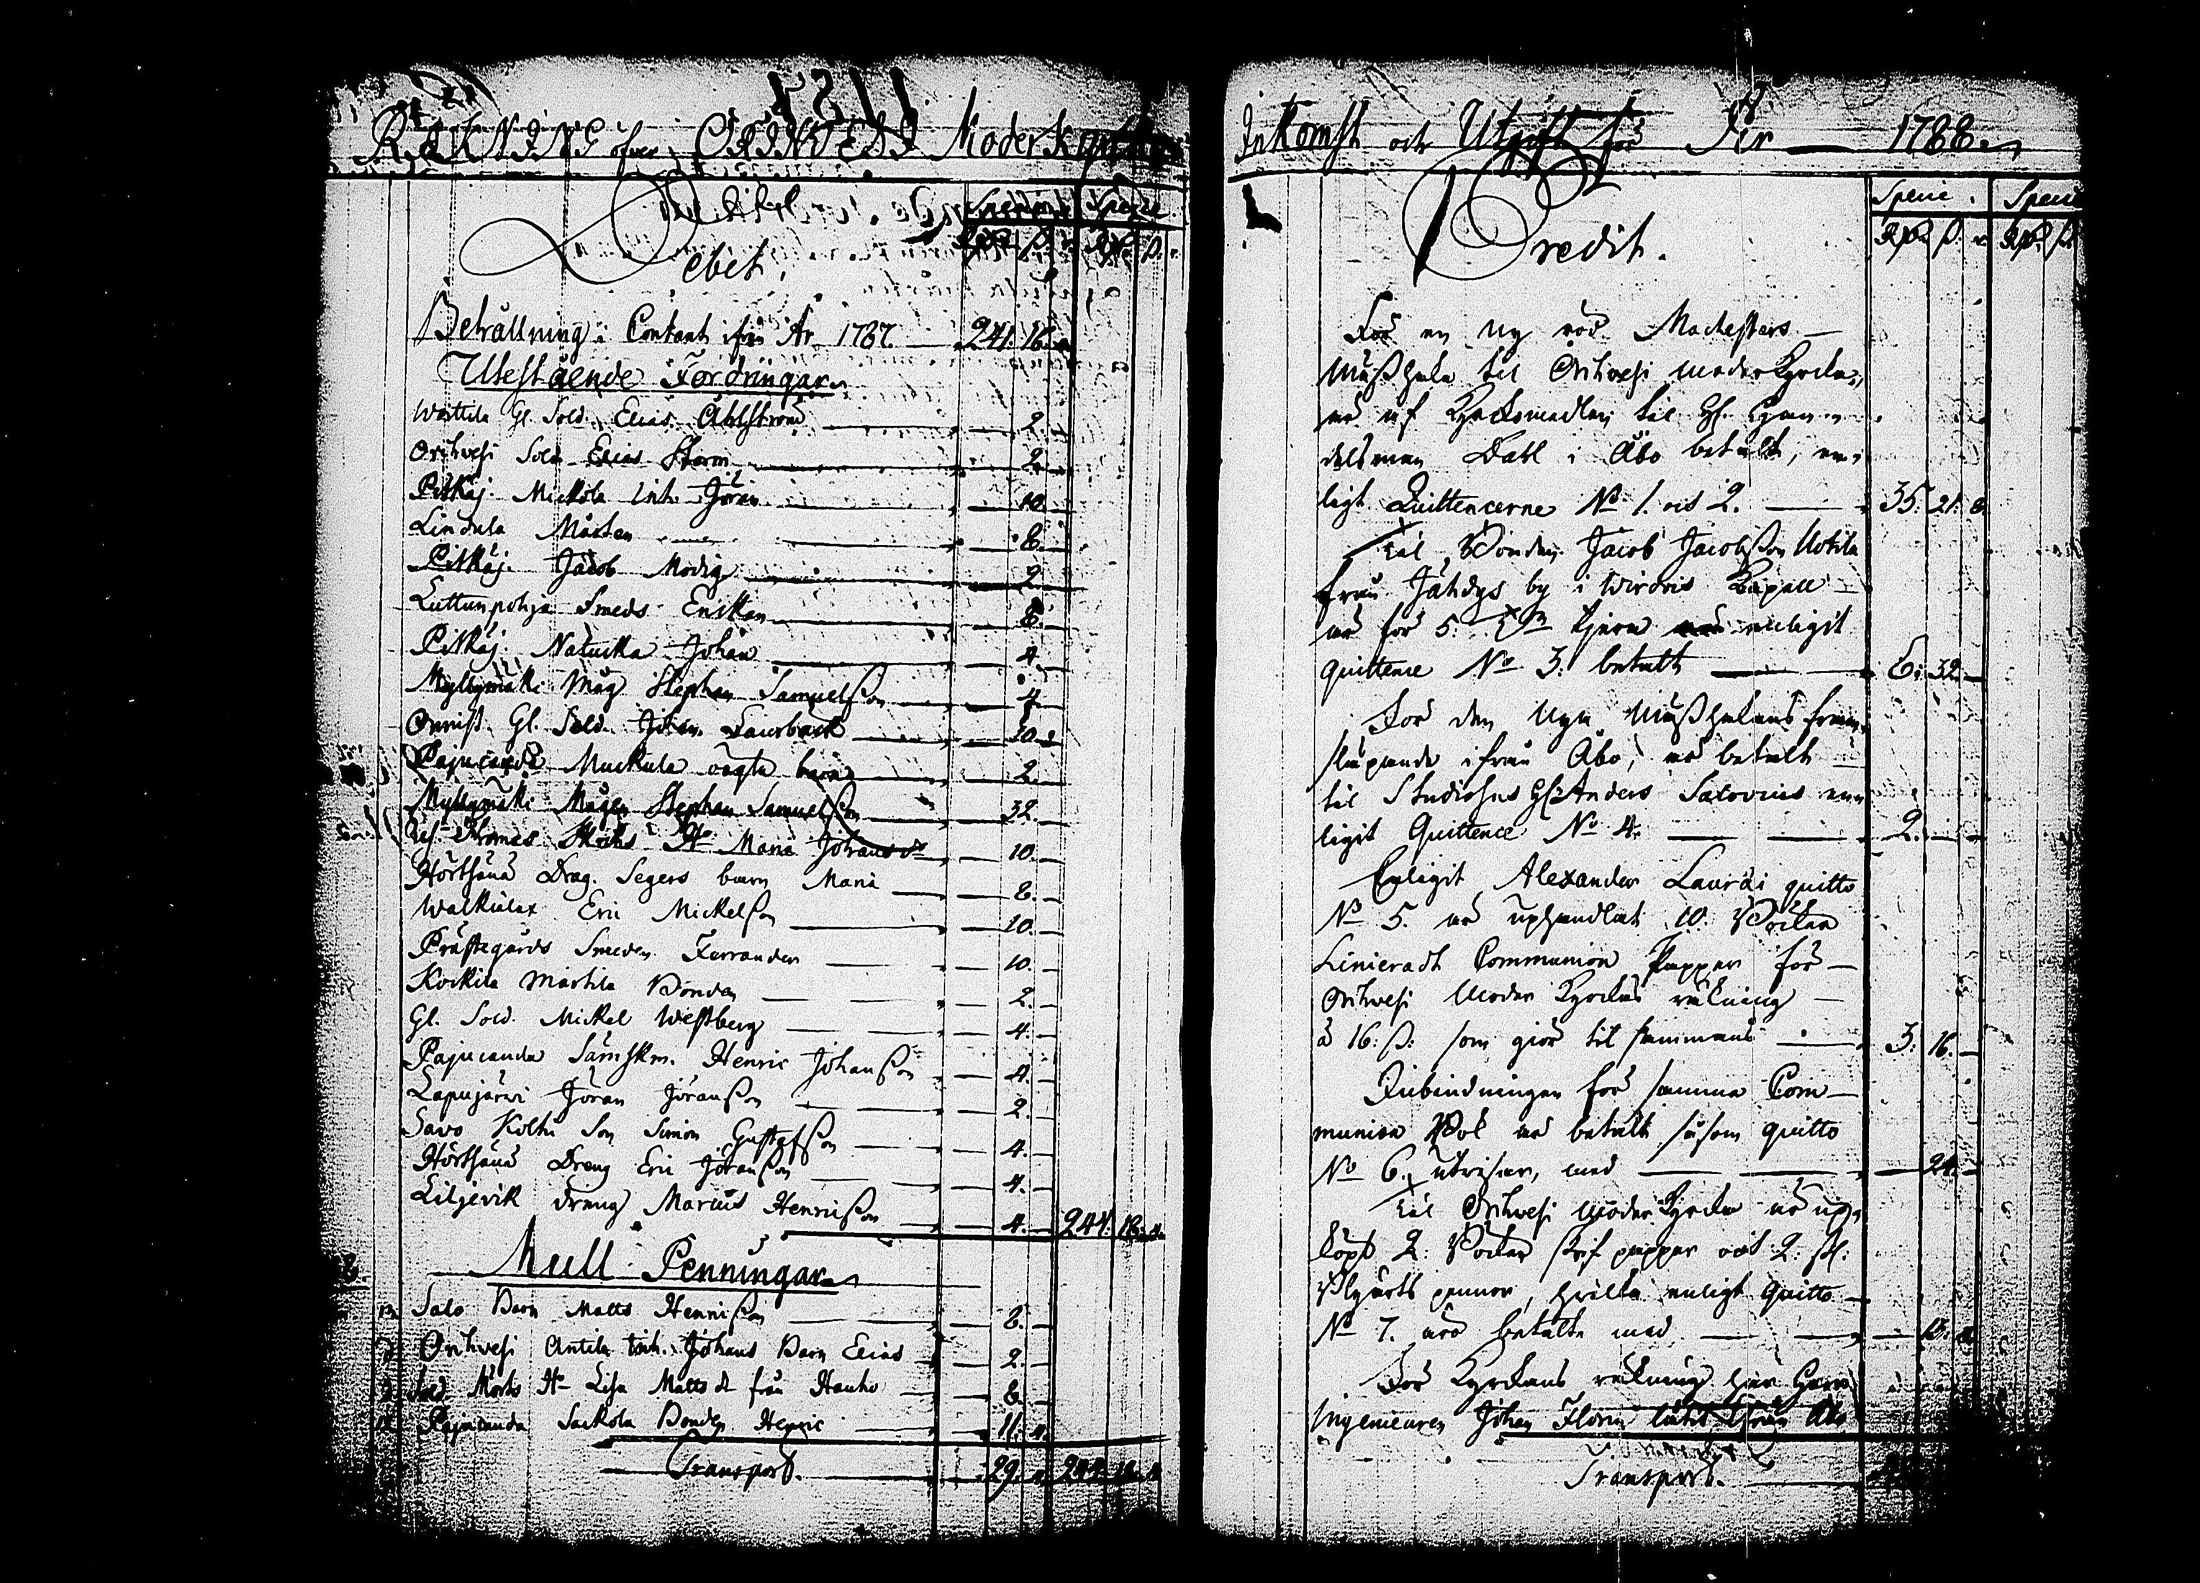 RÄKNING öfver ORIHVESI Moder Kyrkans
Debet.
Specie. Specie.
Behållning: Contant ifrån År 1787 241. 16.
Utestående Fordringar
Wattila Gl. Sold. Elias Ahlström 2.
Orihvesi Sold. Elias Storm 2.
Pitkäj. Mickola Inh. Jöran 10.
Lindula Mårten 8.
Pitkäj. Jacob Modig 2.
Luttunpohja Smeds Enkan 8.
Pitkäj. Johan 4.
Myllymäki Måg Stephan Samuelsson 4.
Gl. Sold. Johan Laurback 10.
Pajucanda Muckula 2.
Myllymäki Mågen Stephan Samuelsson 32.
Thomas Maria Johansdr 10.
Hörtsänä Drag. Segers barn Maria 8.
Walkiala Eric Mickelsson 10.
Prästegårds Smeden Forrander 10.
Kockila Marttila Bonden 2.
Gl. Sold. Mickel Westberg 4.
Pajucanda Sämskm. Henric Johansson 4.
Lapinjärvi Jöran Jöransson 2.
Savo Koltu Son Simon Gustafsson 4.
Hörtsänä Dreng Eric Jöransson 4.
Liljevik dreng Marcus Henricsson 4. 244. 18.
Mull Penningar
Salo Barn Matts Henricsson 8.
Orihvesi Antila Inh. Johans Barn Elias 2.
Sold. Mörks Hu Lisa Mattsdr från Hauho 8.
Pajucanda Sackola Bonden Henric 11.
Transport. 29. 244. 18.
Inkomst och Utgift för År 1788.
Credit.
Specie. Specie
För en ny röd
Mässhake til Orihvesi moder Kyrka,
är af Kyrkomedlen til Hr
Dahl i Åbo betalt, en-
ligt Quittencerne No 1. och 2. 35. 21. 8
Til Bonden Jacob Jacobsson Uotila
från Jähdys by i Wirdois Kapell
är för 5. Tjära enligit
quittence No 3. betalt 6. 32.
För den nya Mässhakens fram-
släpande ifrån Åbo, är betalt
til Studiosus Hr Anders Salovius en-
ligit Quittence No 4. 2.
Enligit Alexander Lauræi quitto
No 5. är uphandlat 10. Böcker
Linieradt Communion Papper för
Orihvesi Moder Kyrkas räkning
à 16. ß. som giör til sammans 3. 16.
Inbindningen för samma Com-
munion Bok är betalt såsom quitto
No 6. utvisar, med 24.
Til Orihvesi moder Kyrka är up-
köpt 2. Böcker skrif papper och 2. st.
Blyerts pennor, hvilka enligt Quitto
No 7. äro betalte med
För Kyrkans räkning har Herr
Ingenieuren Johan Florin låtit ifrån Åbo
Transport.